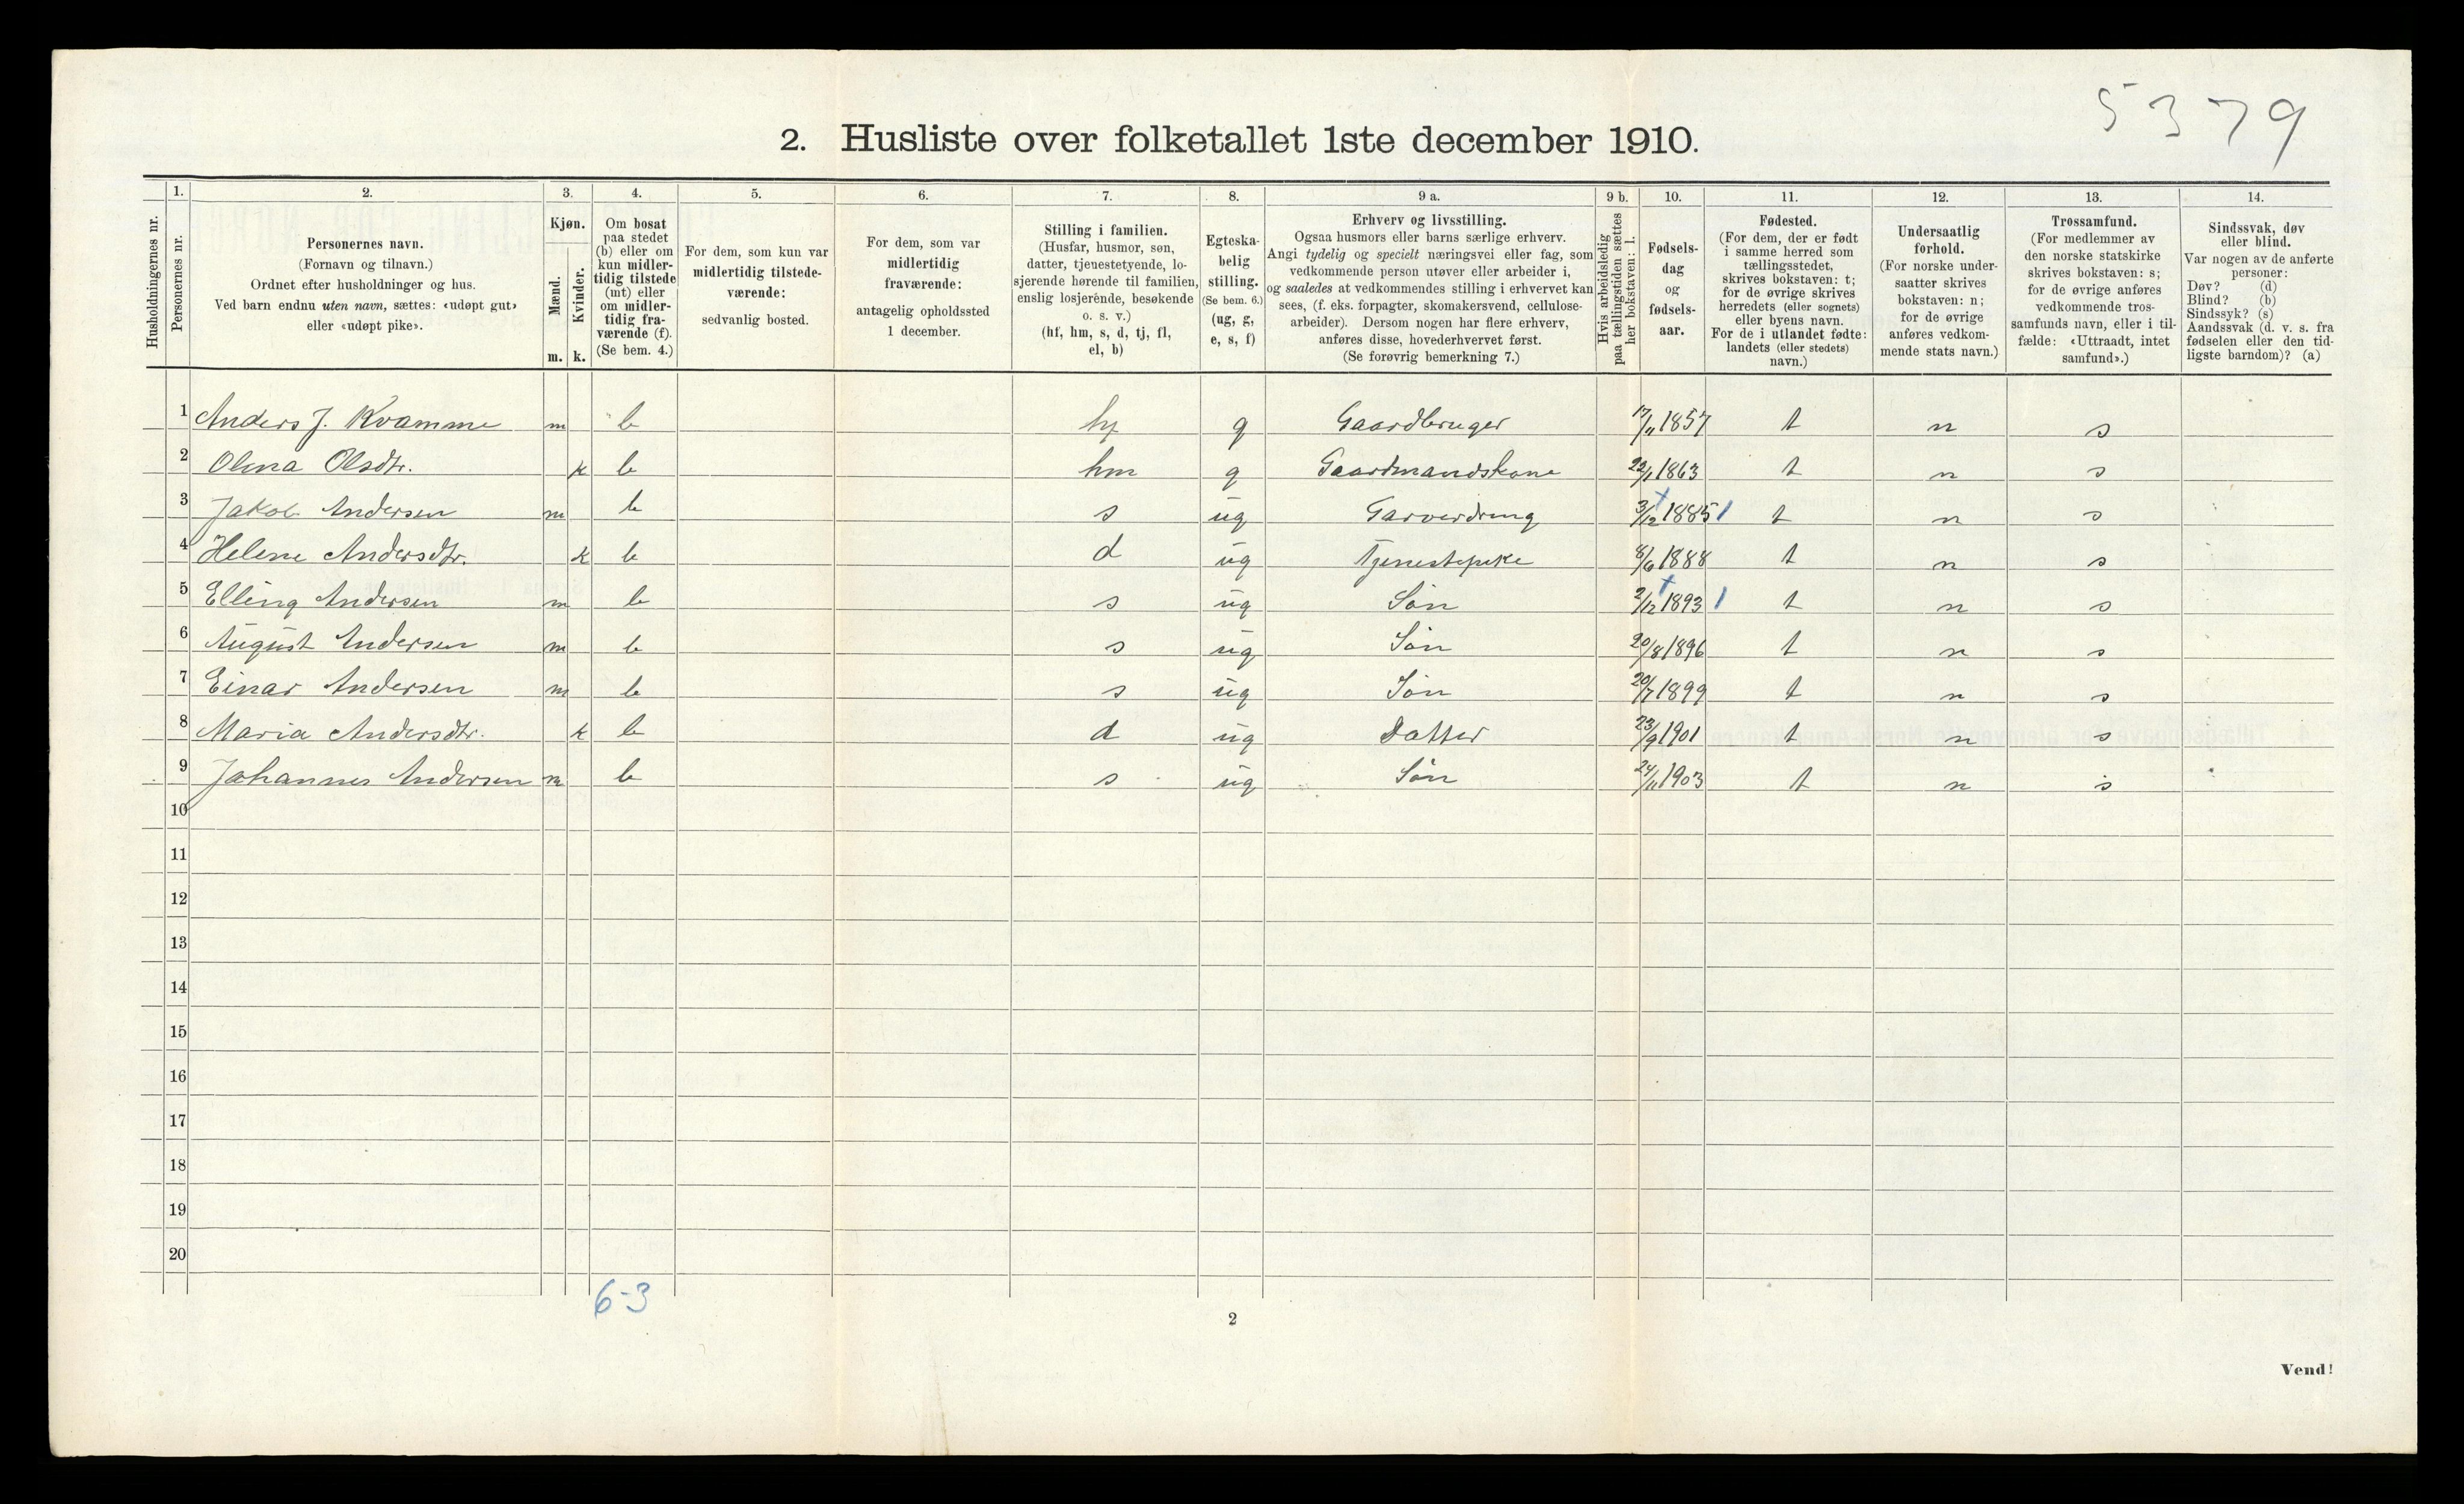 5379
2. Husliste over folketallet 1ste december 1910.
Husholdningernes nr.
1. Personernes nr.
2. Personernes navn.
(Fornavn og tilnavn.)
Ordnet efter husholdninger og hus.
Ved barn endnu uten navn, sættes: «udøpt gut»
eller «udøpt pike».
3. Kjøn.
Mænd. Kvinder.
m. k.
4. Om bosat
paa stedet
(b) eller om
kun midler-
tidig tilstede
(mt) eller
om midler-
tidig fra-
værende (f).
(Se bem. 4.)
5. For dem, som kun var
midlertidig tilstede-
værende:
sedvanlig bosted.
6. For dem, som var
midlertidig
fraværende:
antagelig opholdssted
1 december.
7. Stilling i familien.
(Husfar, husmor, søn,
datter, tjenestetyende, lo-
sjerende hørende til familien,
enslig losjerende, besøkende
o. s. v.)
(hf, hm, s, d, tj, fl,
el, b)
8. Egteska-
belig
stilling.
(Se bem. 6.)
(ug, g,
e, s, f)
9 a. Erhverv og livsstilling.
Ogsaa husmors eller barns særlige erhverv.
Angi tydelig og specielt næringsvei eller fag, som
vedkommende person utøver eller arbeider i,
og saaledes at vedkommendes stilling i erhvervet kan
sees, (f. eks. forpagter, skomakersvend, cellulose-
arbeider). Dersom nogen har flere erhverv,
anføres disse, hovederhvervet først.
(Se forøvrig bemerkning 7.)
9 b. Hvis arbeidsledig
paa tællingstiden sættes
her bokstaven: l.
10. Fødsels-
dag
og
fødsels-
aar.
11. Fødested.
(For dem, der er født
i samme herred som
tællingsstedet,
skrives bokstaven: t;
for de øvrige skrives
herredets (eller sognets)
eller byens navn.
For de i utlandet fødte:
landets (eller stedets)
navn.)
12. Undersaatlig
forhold.
(For norske under-
saatter skrives
bokstaven: n;
for de øvrige
anføres vedkom-
mende stats navn.)
13. Trossamfund.
(For medlemmer av
den norske statskirke
skrives bokstaven: s;
for de øvrige anføres
vedkommende tros-
samfunds navn, eller i til-
fælde: «Uttraadt, intet
samfund».)
14. Sindssvak, døv
eller blind.
Var nogen av de anførte
personer:
Døv? (d)
Blind? (b)
Sindssyk? (s)
Aandssvak (d. v. s. fra
fødselen eller den tid-
ligste barndom)? (a)
1 Anders J. Kvamme m b hf g Gaardbruger 17/11 1857 t n s
2 Olina Olsdtr. k b hm g Gaardmandskone 22/1 1863 t n s
3 Jakob Andersen m b s ug Garverdreng 3/12 1885 1 t n s
4 Helene Andersdtr. k b d ug Tjenestepike 8/6 1888 t n s
5 Elling Andersen m b s ug Søn 2/12 1893 1 t n s
6 August Andersen m b s ug Søn 20/8 1896 t n s
7 Einar Andersen m b s ug Søn 20/7 1899 t n s
8 Maria Andersdtr. k b d ug Datter 23/9 1901 t n s
9 Johannes Andersen m b s ug Søn 24/11 1903 t n s
10
11
12
13
14
15
16
17
18
19
20
6-3
2
Vend!